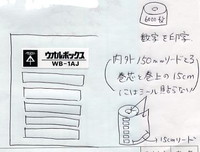 ウオルボックス
WB-1AJ
数字を印字
内外150mリードとる
巻芯と巻上の15cm
にはシール貼らない
15cmリード